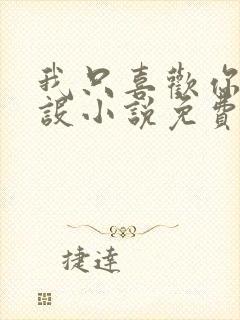 我只喜歡你
設小說免費
捷達